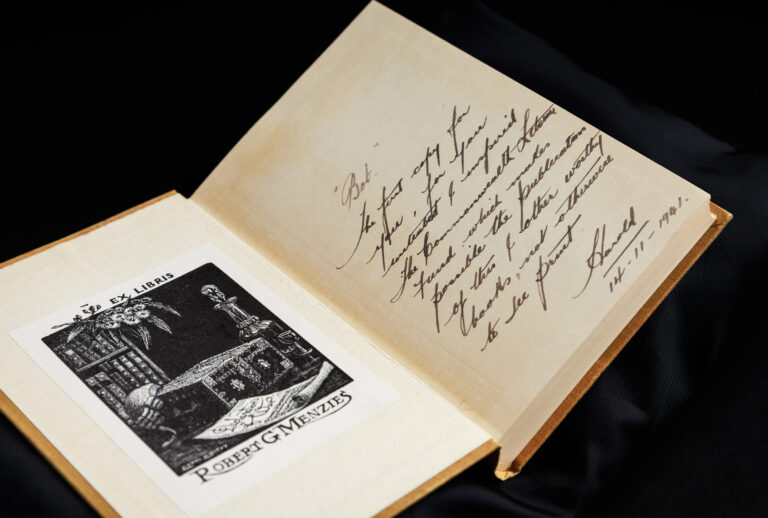 EX LIBRIS
ROBERT G MENZIES
"Bob."
The first copy for
you, for your
interest & inspired
the Commonwealth
Fund which makes
possible the publication
of this & other worthy
books, not otherwise
to see print
Harold
14-11-1941.